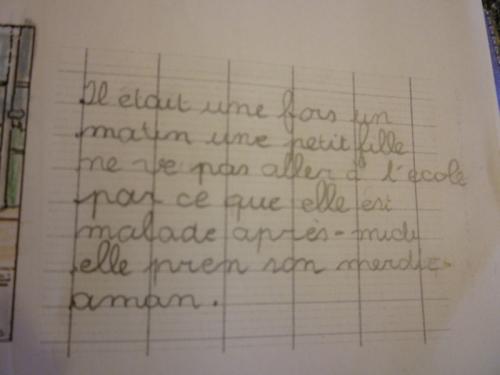 Il était une fois un
matin une petit fille
ne ve pas aller à l'école
par ce que elle est
malade après-midi
elle pren son merdic
aman.